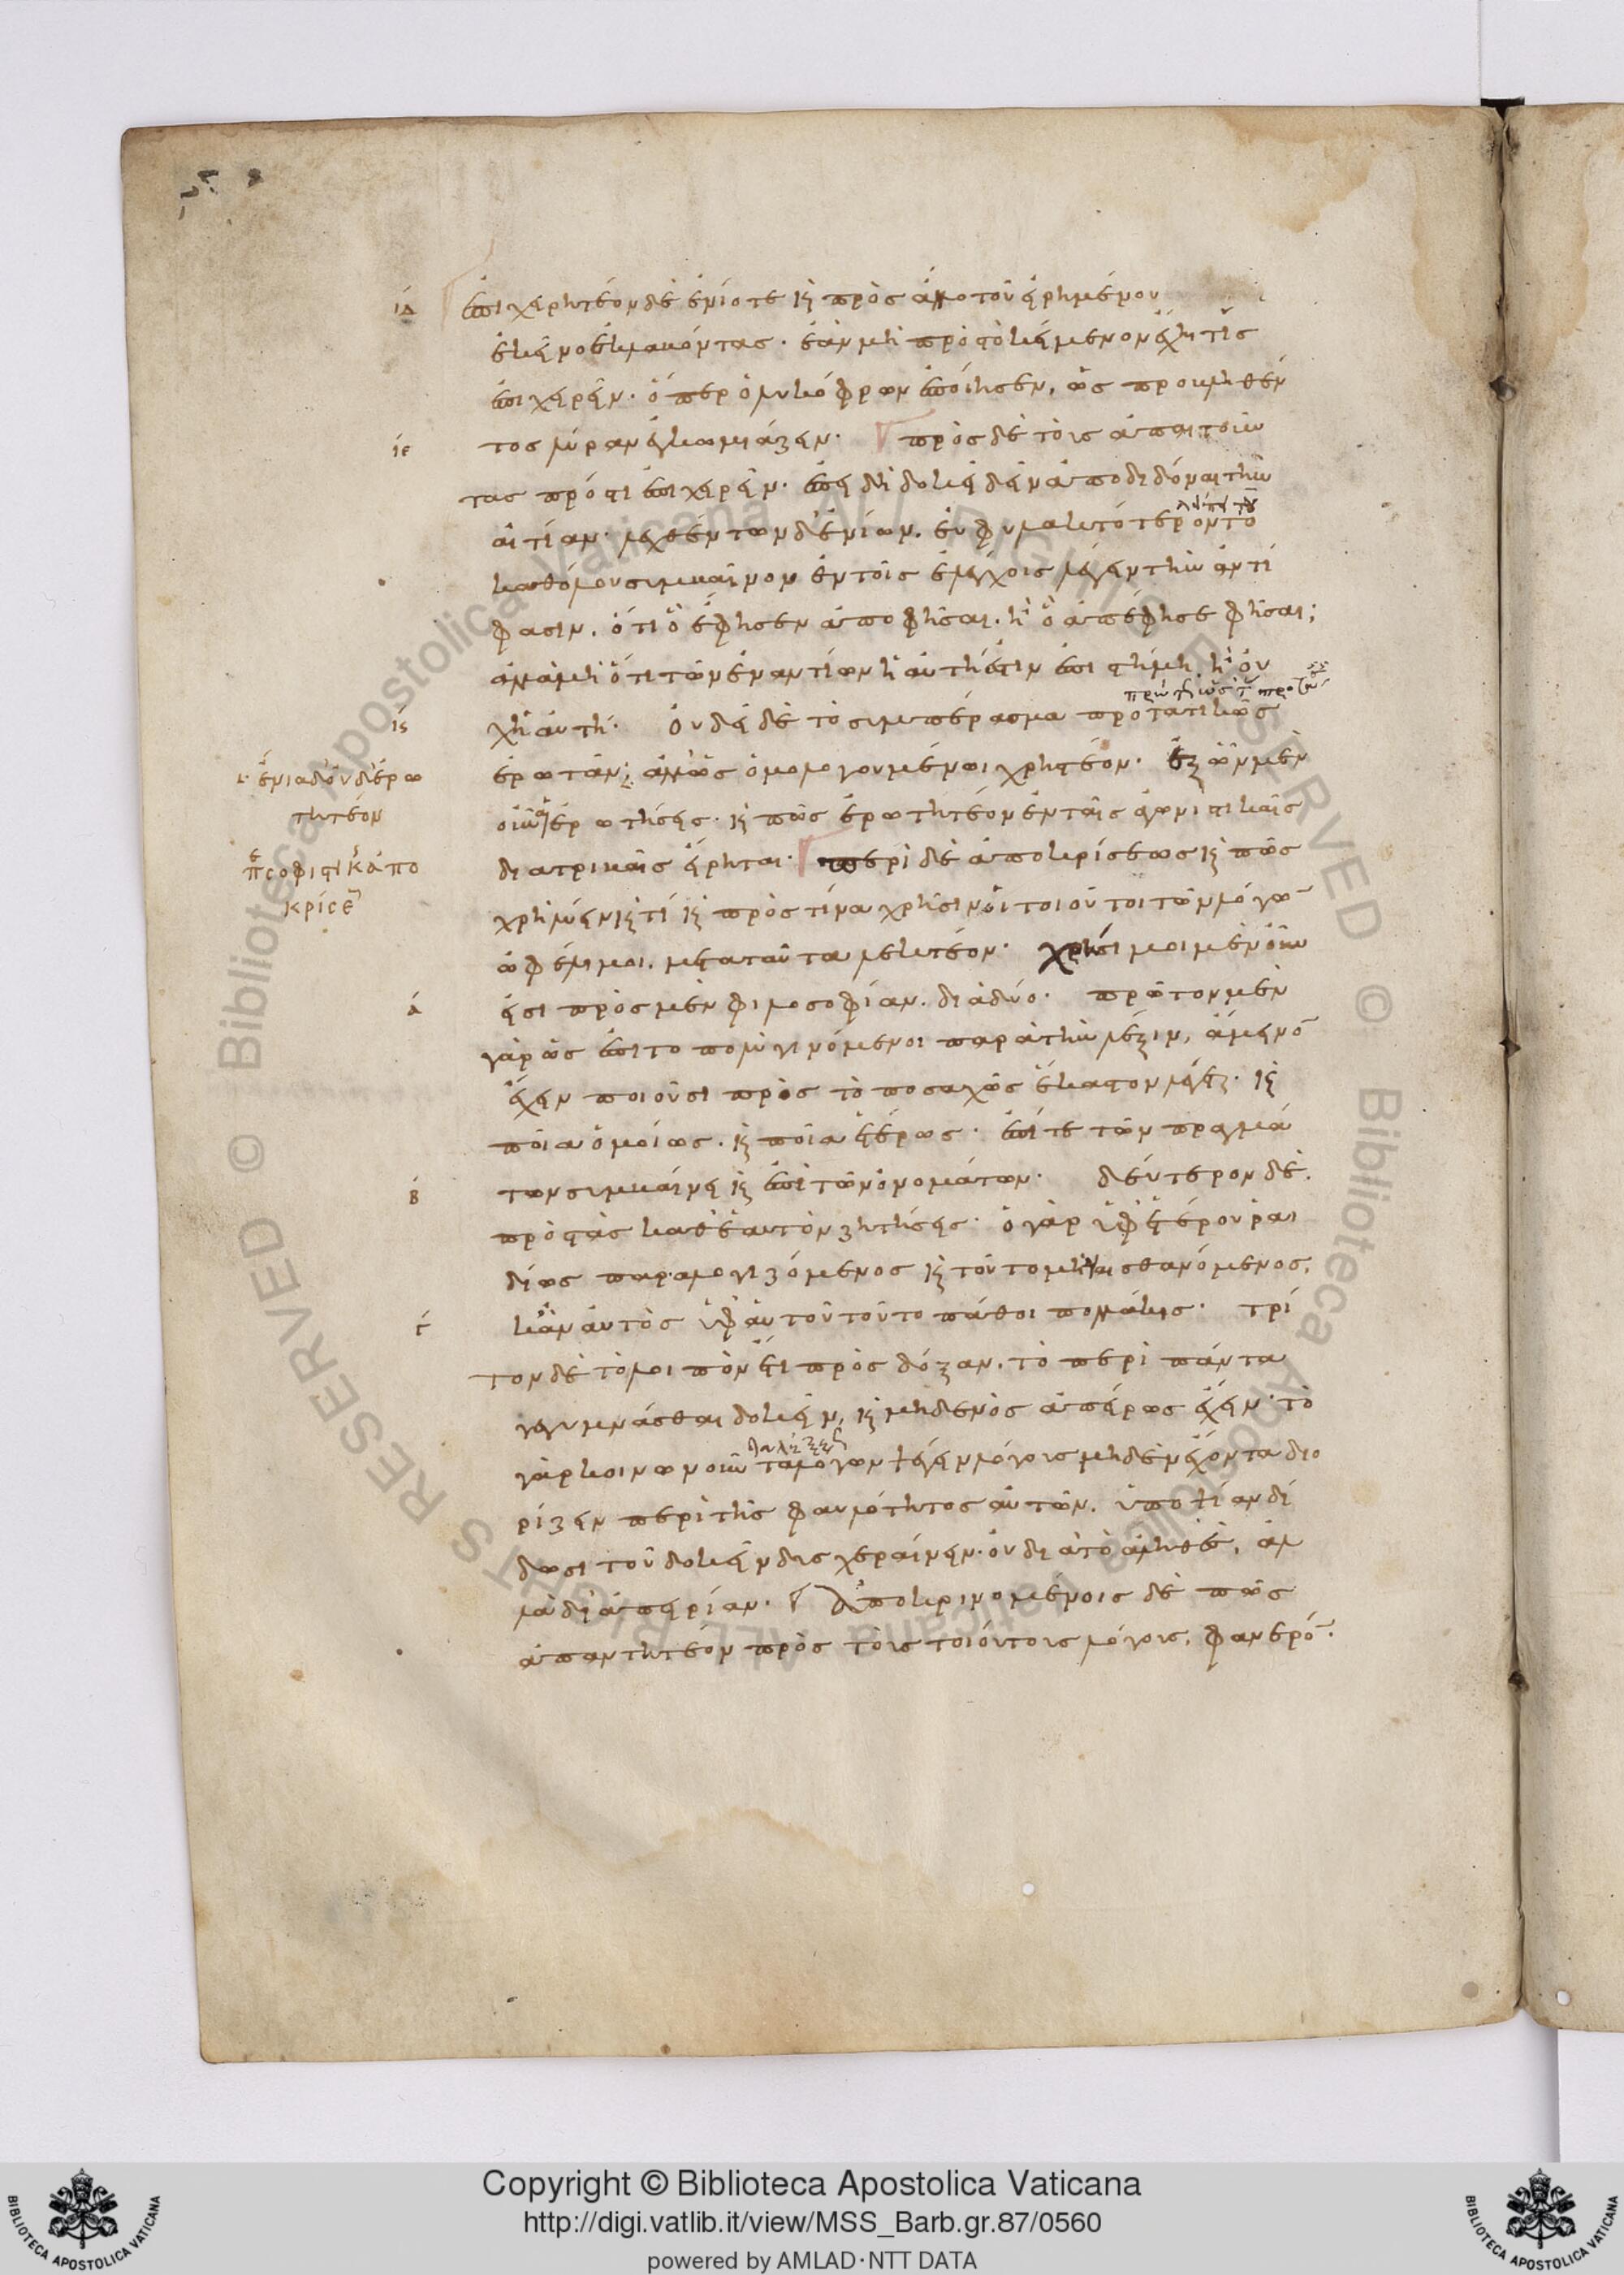 ιδ ἐπιχειρητέον δὲ ἐνίοτε καὶ πρὸς ἄλλο τοῦ εἰρημένου
ἐκεῖνο ἐκλαβόντας· ἐὰν μὴ πρὸς τὸ κείμενον ἔχη τις
ἐπιχειρεῖν· ὅπερ ὁ λυκόφρων ἐποίησεν, ὡς προβληθέν
ιε τος λύραν ἐγκωμιάζειν· πρὸς δὲ τοὺς ἀπαιτοῦν
τας πρός τι ἐπιχειρεῖν· ἐπειδὴ δοκεῖ δεῖν ἀποδιδόναι τὴν
αἰτίαν· λεχθέντων δ' ἐνίων, εὐφυλακτότερον τὸ
καθόλου συμβαῖνον ἐν τοῖς ἐλέγχοις λέγειν τὴν ἀντί
φασιν, ὅτι ὃ ἔφησεν ἀποφῆσαι· ἢ ὃ ἀπέφησε φῆσαι;
ἀλλὰ μὴ ὅτι τῶν ἐναντίων ἡ αὐτή ἐστιν ἐπιστήμη ἢ οὐ
ις χὴ αὐτή· Οὐ δεῖ δὲ τὸ συμπέρασμα προτατικῶς
ἐρωτᾶν; ἀλλ' ὡς ὁμολογουμένωι χρηστέον· ἐξ ὧν μὲν
ἔνια δ' οὐδ' ἐρω
τητέον
οὖν αἱ ἐρωτήσεις· καὶ πῶς ἐρωτητέον ἐν ταῖς ἀγωνιστικαῖς
περὶ σοφιστικῆς ἀπο
κρίσεως
διατριβαῖς εἴρηται· περὶ δὲ ἀποκρίσεως καὶ πῶς
χρὴ λύειν καὶ τί καὶ πρὸς τίνα χρῆσιν οἱ τοιοῦτοι τῶν λόγων
ὠφέλιμοι, μετὰ ταῦτα λεκτέον· χρήσιμοι μὲν οὖν
α εἰσὶ πρὸς μὲν φιλοσοφίαν, διὰ δύο· πρῶτον μὲν
γὰρ ὡς ἐπὶ τὸ πολὺ γινόμενοι παρὰ τὴν λέξιν, ἄμεινον
ἔχειν ποιοῦσι πρὸς τὸ ποσαχῶς ἕκαστον λέγεται· καὶ
ποῖα ὁμοίως· καὶ ποῖα ἑτέρως· ἐπί τε τῶν πραγμά
β των συμβαίνει καὶ ἐπὶ τῶν ὀνομάτων· δεύτερον δὲ,
πρὸς τὰς καθ' ἑαυτὸν ζητήσεις· ὁ γὰρ ὑφ' ἑτέρου ῥαι
δίως παραλογιζόμενος καὶ τοῦτο μὴ αἰσθανόμενος,
γ κἂν αὐτὸς ὑφ' αὑτοῦ τοῦτο πάθοι πολλάκις· τρί
τον δὲ τὸ λοιπὸν ἔτι πρὸς δόξαν, τὸ περὶ πάντα
γεγυμνάσθαι δοκεῖν, καὶ μηδενὸς ἀπείρως ἔχειν· τὸ
γὰρ κοινωνοῦντα λόγων ψέγειν λόγους μηδὲν ἔχοντα διο
ρίζειν περὶ τῆς φαυλότητος αὐτῶν, ὑποψίαν δί
δωσι τοῦ δοκεῖν δυσχεραίνειν· οὐ διὰ τὸ ἀληθὲς, ἀλ
λὰ δι' ἀπειρίαν· Ἀποκρινομένοις δὲ πῶς
ἀπαντητέον πρὸς τοὺς τοιούτους λόγους, φανερόν·
Copyright © Biblioteca Apostolica Vaticana
http://digi.vatlib.it/view/MSS_Barb.gr.87/0560
powered by AMLAD·NTT DATA